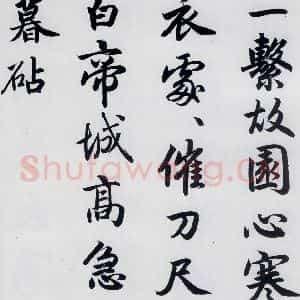 一繫故園心寒
衣處、催刀尺
白帝城高急
暮砧
Shufawang.cn